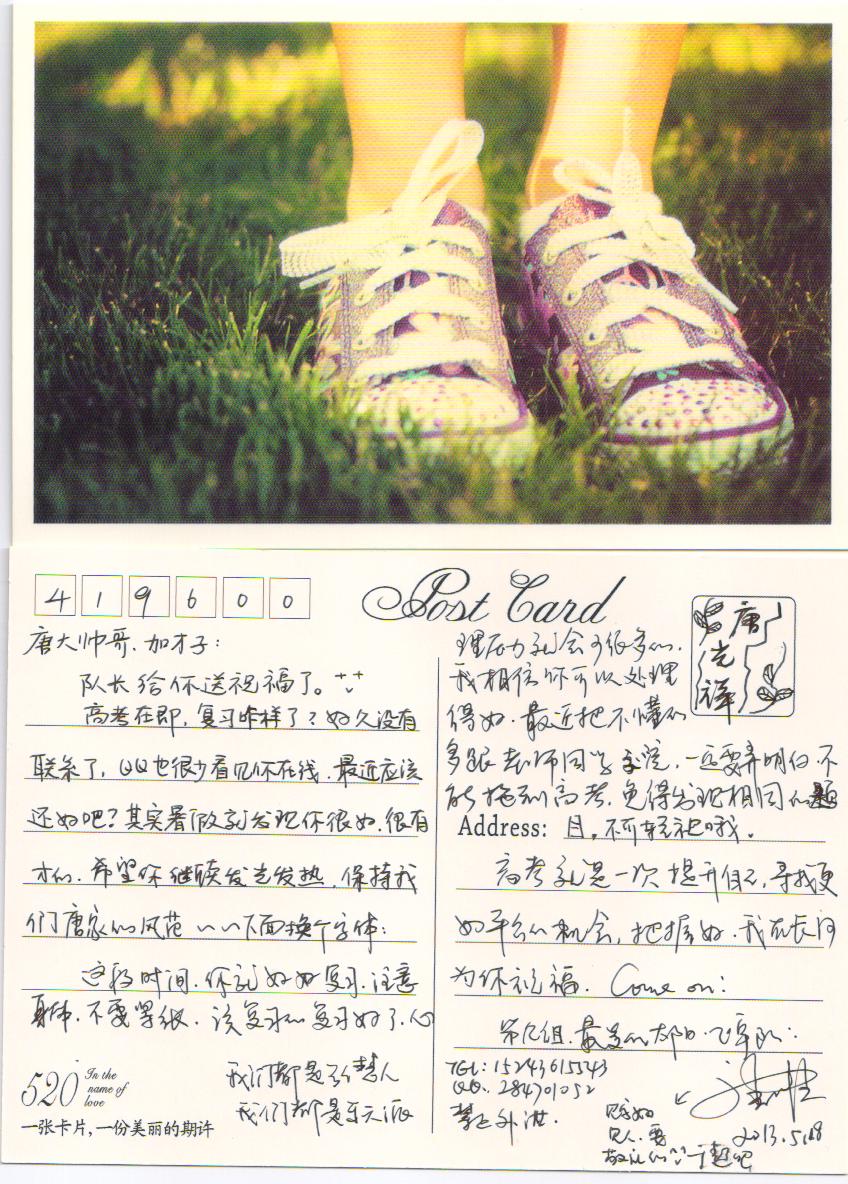 419600
Post Card
唐光祥
唐大帅哥、加才子：
队长给你送祝福了。
高考在即，复习咋样了？好久没有
联系了，QQ也很少看见你在线，最近应该
还好吧？其实暑假就发现你很好，很有
才的，希望你继续发光发热，保持我
们唐家的风范 下面换个字体：
这段时间，你就好好复习，注意
身体，不要紧张，该复习的复习好了，心
理压力就会少很多的，
我相信你可以处理
得好，最近把不懂的
多跟老师同学交流，一定要弄明白，不
能拖到高考，免得发现相同的题
Address:
目，不可轻视哦。
高考就是一次提升自己，寻找更
好平台的机会，把握好，我在长河
为你祝福。Come on！
第几组，最美的太阳
TEL：15243615543
QQ：284701052
2013.5.18
我们都是
我们都是乐天派
520
In the
name of
love
一张卡片，一份美丽的期许